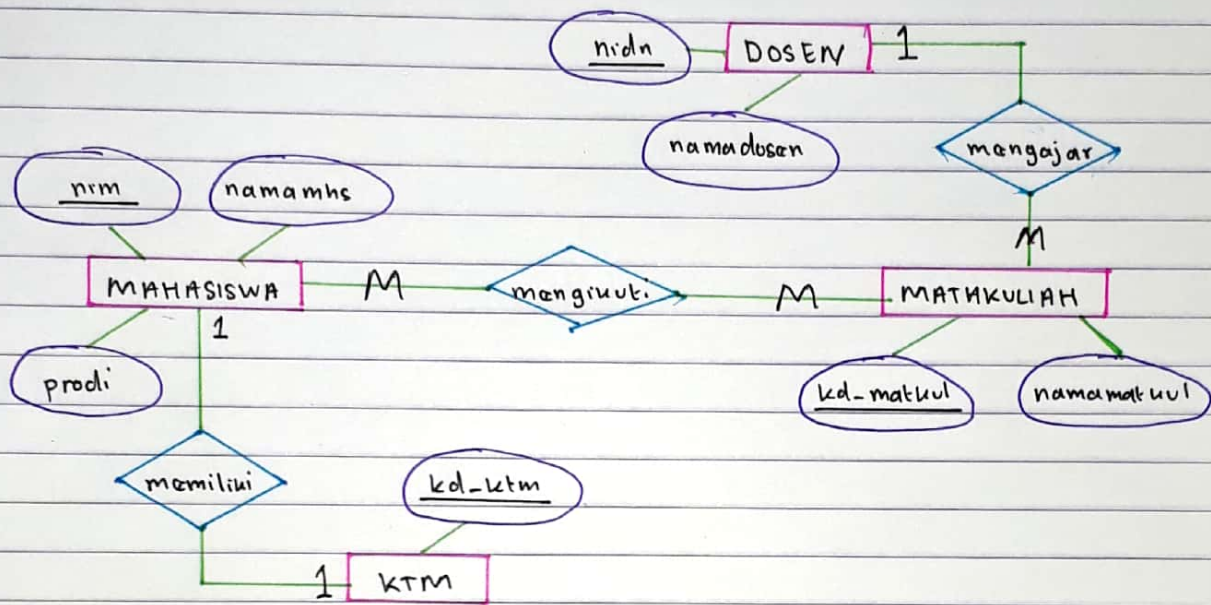 nidn
DOSEN
1
namadosen
mengajar
M
nrm
namamhs
MAHASISWA
M
mengikuti
M
MATAKULIAH
1
prodi
kd-matkul
namamatkul
memiliki
kd-ktm
1
KTM